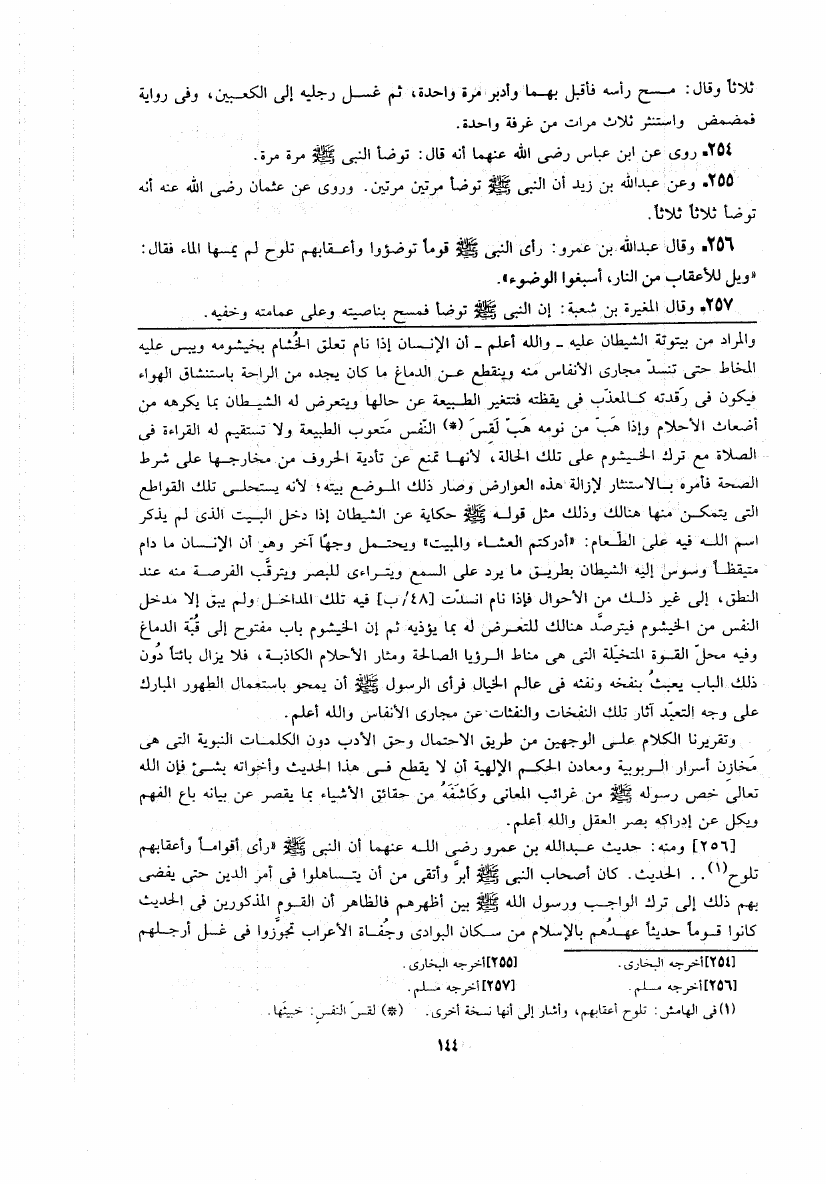 ثلاثاً وقال: مسح رأسه فأقبل بهما وأدبر مرة واحدة، ثم غسل رجليه إلى الكعبين، وفى رواية
فمضمض واستنثر ثلاث مرات من غرفة واحدة.
٢٥٤ـ روى عن ابن عباس رضى الله عنهما أنه قال: توضأ النبى ﷺ مرة مرة.
٢٥٥ـ وعن عبدالله بن زيد أن النبى ﷺ توضأ مرتين مرتين. وروى عن عثمان رضى الله عنه أنه
توضأ ثلاثاً ثلاثاً.
٢٥٦ـ وقال عبدالله بن عمرو: رأى النبى ﷺ قوماً توضؤوا وأعقابهم تلوح لم يمسها الماء فقال:
«ويل للأعقاب من النار، أسبغوا الوضوء».
٢٥٧ـ وقال المغيرة بن شعبة: إن النبى ﷺ توضأ فمسح بناصيته وعلى عمامته وخفيه.
والمراد من بيتوتة الشيطان عليه ـ والله أعلم ـ أن الإنسان إذا نام تعلق الخُشام بخيشومه ويبس عليه
المخاط حتى تنسدّ مجارى الأنفاس منه وينقطع عن الدماغ ما كان يجده من الراحة باستنشاق الهواء
فيكون فى رَقدته كالمعذّب فى يقظته فتتغير الطبيعة عن حالها ويتعرض له الشيطان بما يكرهه من
أضعاث الأحلام وإذا هَبّ من نومه هَبّ لَقِسَ (*) النّفس مَتعوب الطبيعة ولا تستقيم له القراءة فى
الصلاة مع ترك الخيشوم على تلك الحالة، لأنها تمنع عن تأدية الحروف من مخارجها على شرط
الصحة فأمره بالاستنثار لإزالة هذه العوارض وصار ذلك الموضع بيته؛ لأنه يستحلى تلك القواطع
التى يتمكن منها هنالك وذلك مثل قوله ﷺ حكاية عن الشيطان إذا دخل البيت الذى لم يذكر
اسم الله فيه على الطّعام: «أدركتم العشاء والمبيت» ويحتمل وجهًا آخر وهو أن الإنسان ما دام
متيقظاً وسوس إليه الشيطان بطريق ما يرد على السمع ويتراءى للبصر ويترقّب الفرصة منه عند
النطق، إلى غير ذلك من الأحوال فإذا نام انسدّت [٤٨/ب] فيه تلك المداخل ولم يبق إلا مدخل
النفس من الخيشوم فيترصّد هنالك للتعرض له بما يؤذيه ثم إن الخيشوم باب مفتوح إلى قُبّة الدماغ
وفيه محلّ القوة المتخيّلة التى هى مناط الرؤيا الصالحة ومثار الأحلام الكاذبة، فلا يزال بائتاً دُون
ذلك الباب يعبثُ بنفخه ونفثه فى عالم الخيال فرأى الرسول ﷺ أن يمحو باستعمال الطهور المبارك
على وجه التعبّد آثار تلك النفخات والنفثات عن مجارى الأنفاس والله أعلم.
وتقريرنا الكلام على الوجهين من طريق الاحتمال وحق الأدب دون الكلمات النبوية التى هى
مَخازن أسرار الربوبية ومعادن الحكم الإلهية أن لا يقطع فى هذا الحديث وأخواته بشئ فإن الله
تعالى خص رسوله ﷺ من غرائب المعانى وكَاشَفَهُ من حقائق الأشياء بما يقصر عن بيانه باع الفهم
ويكل عن إدراكه بصر العقل والله أعلم.
[٢٥٦] ومنه: حديث عبدالله بن عمرو رضى الله عنهما أن النبى ﷺ «رأى أقواماً وأعقابهم
تلوح(١).. الحديث. كان أصحاب النبى ﷺ أبرَّ وأتقى من أن يتساهلوا فى أمر الدين حتى يفضى
بهم ذلك إلى ترك الواجب ورسول الله ﷺ بين أظهرهم فالظاهر أن القوم المذكورين فى الحديث
كانوا قوماً حديثاً عهدُهم بالإسلام من سكان البوادى وجُفاة الأعراب تجوَّزوا فى غسل أرجلهم
[٢٥٤] أخرجه البخارى. [٢٥٥] أخرجه البخارى.
[٢٥٦] أخرجه مسلم. [٢٥٧] أخرجه مسلم.
(١) فى الهامش: تلوح أعقابهم، وأشار إلى أنها نسخة أخرى. (*) لقسَ النفسِ: خبيثَها.
١٤٤